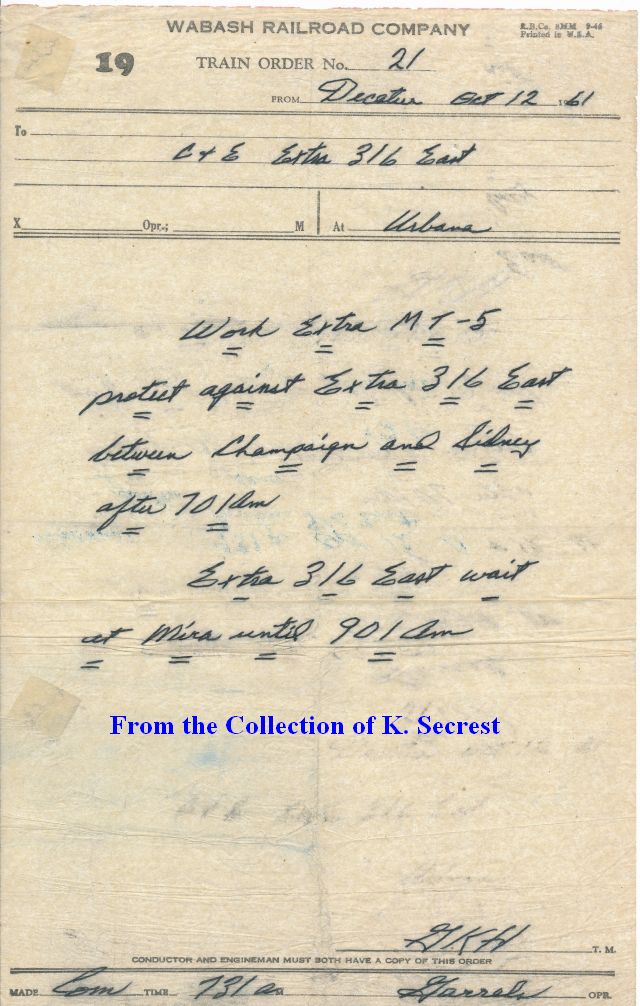 WABASH RAILROAD COMPANY
R.B.Co. 8MM 9-46
Printed in U.S.A.
19 TRAIN ORDER No. 21
FROM Decatur Oct 12 1961
To
C & E Extra 316 East
X Opr.; M At Urbana
Work Extra MT-5
protect against Extra 316 East
between Champaign and Sidney
after 701 Am
Extra 316 East wait
at Mira until 901 Am
From the Collection of K. Secrest
GKH T. M.
CONDUCTOR AND ENGINEMAN MUST BOTH HAVE A COPY OF THIS ORDER
MADE Com TIME 731 a M Garrels OPR.